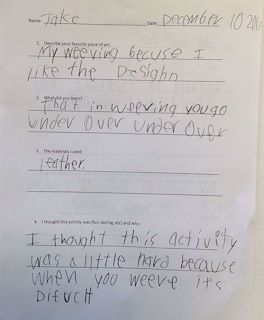 Name: Jake Date: December 10
1. Describe your favorite piece of art.
My weeving becuse I
like the Desighn
2. What did you learn?
That in weeving you go
under over under over
3. The materials I used:
leather.
4. I thought this activity was (fun, boring, etc) and why:
I thought this activity
was a little hard because
when you weeve it's